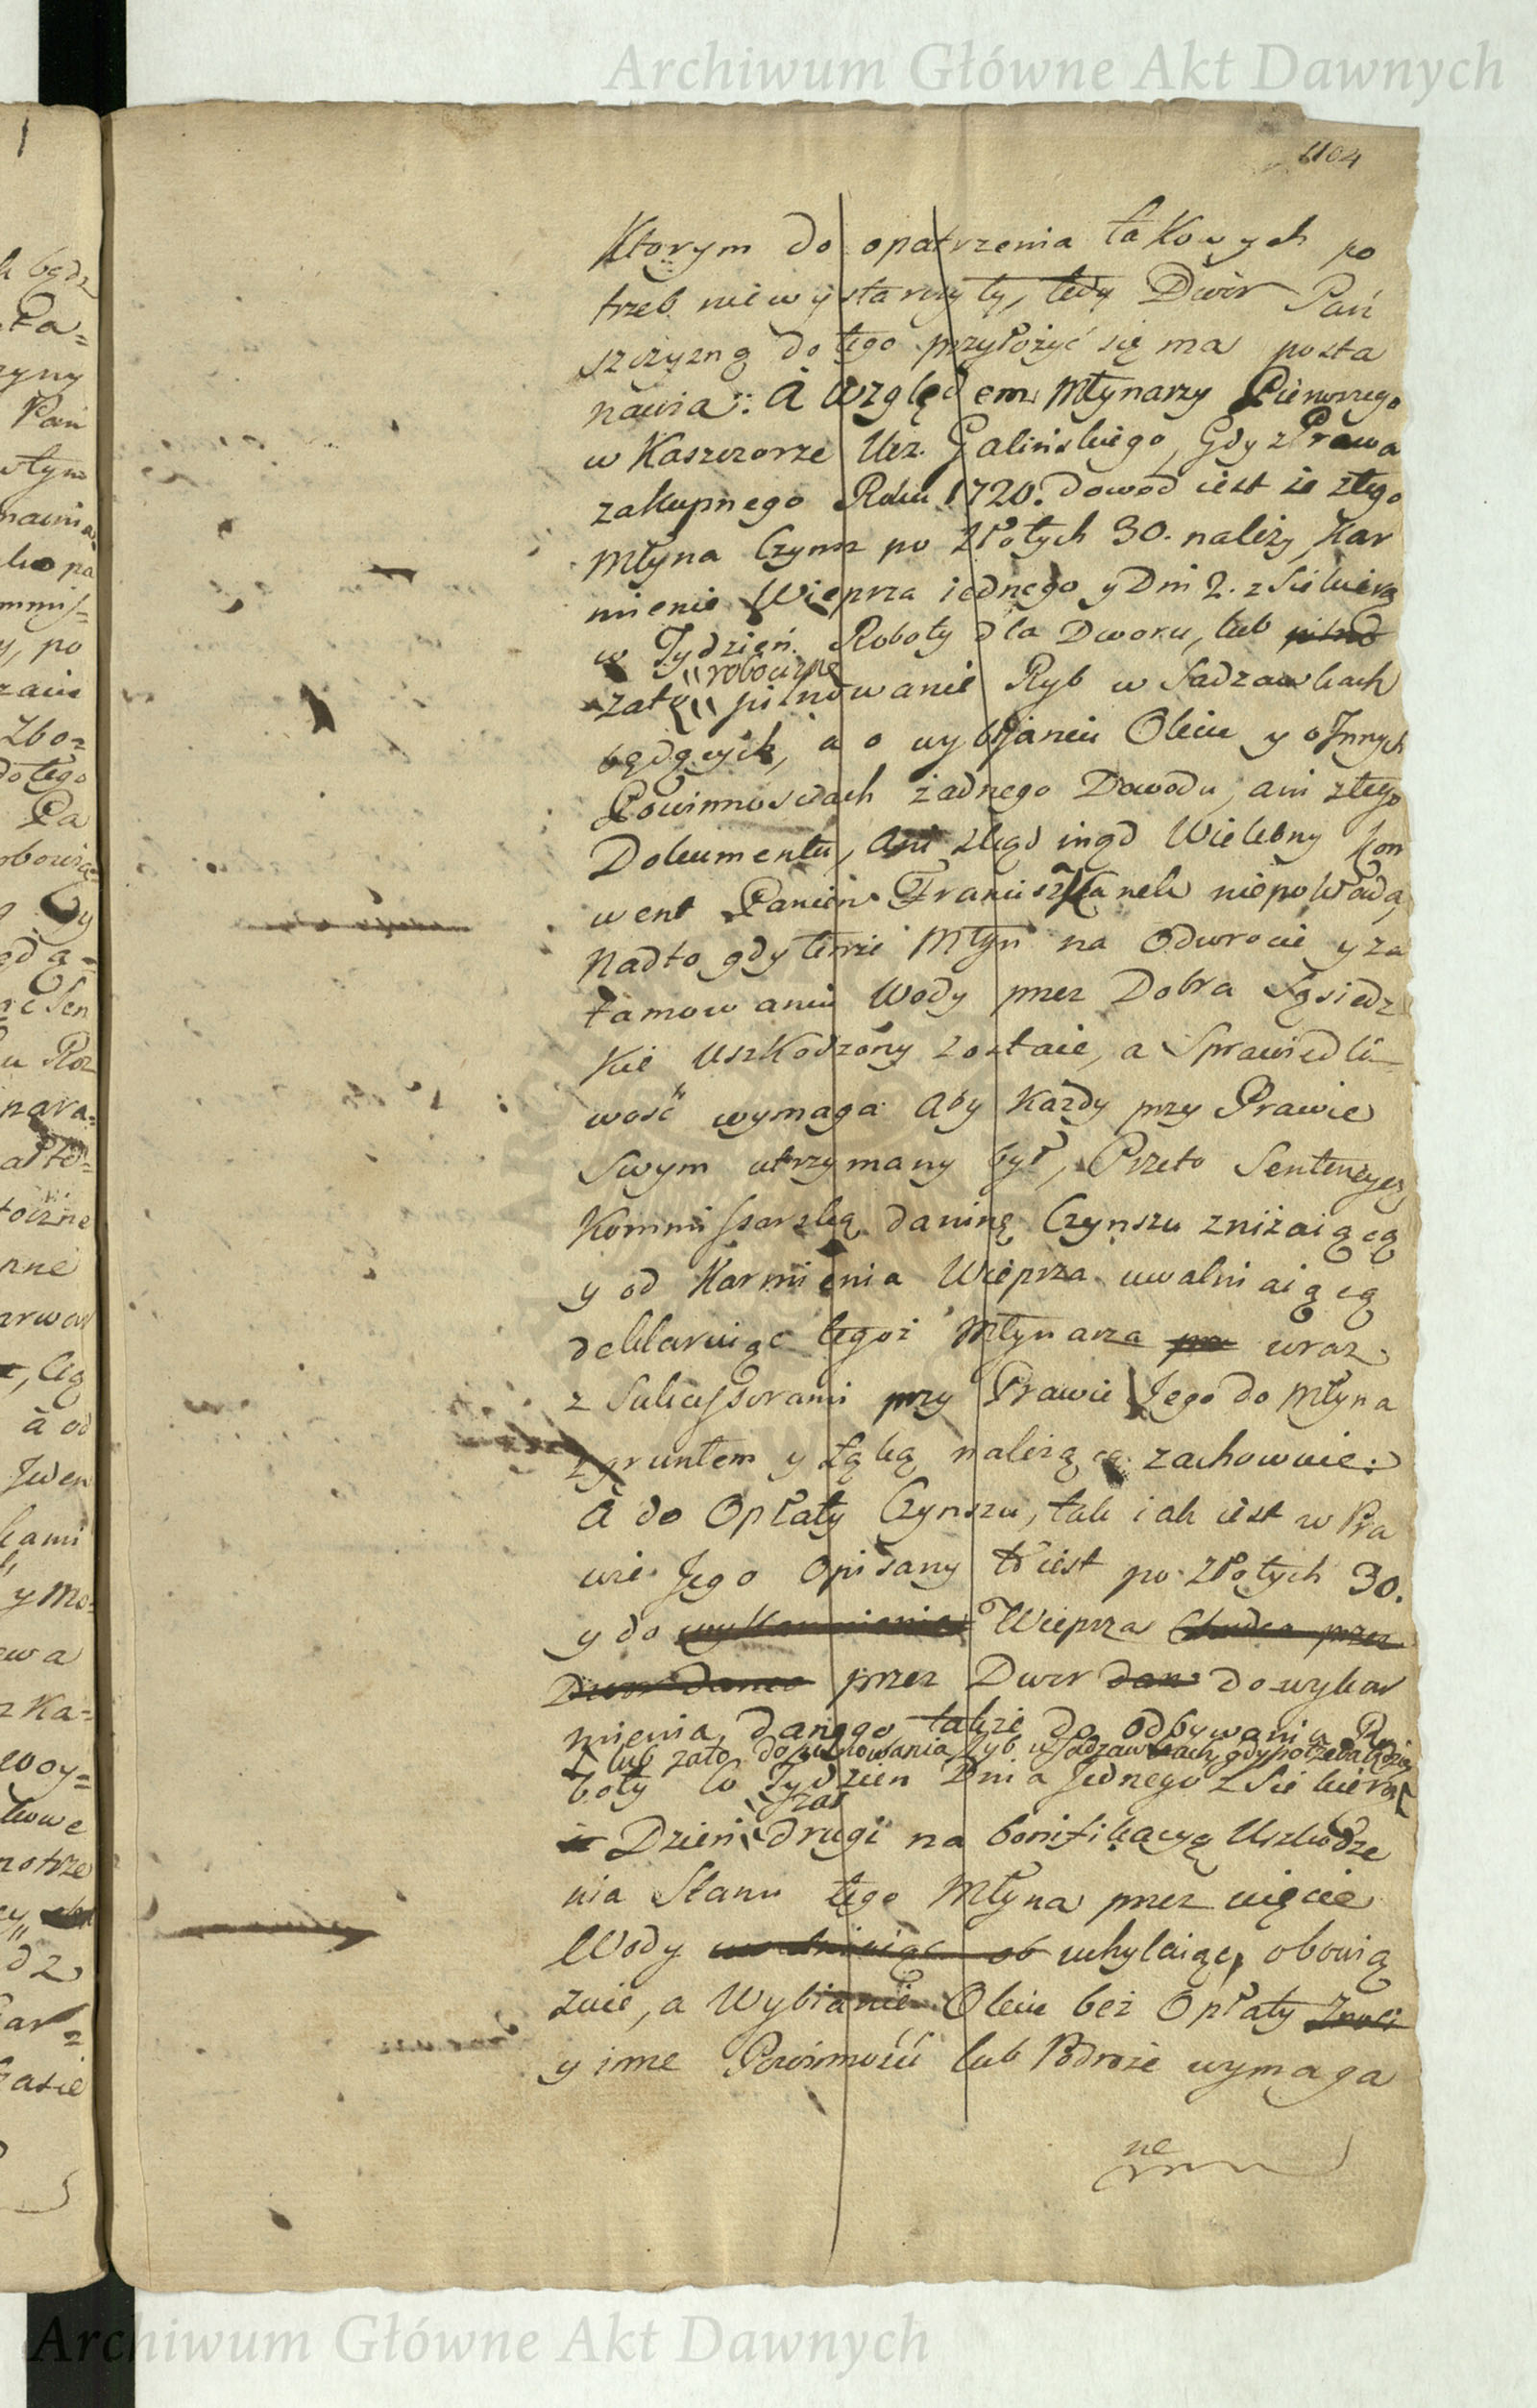 Archiwum Główne Akt Dawnych
1104
Ktorym do opatrzenia takowych po
trzeb niewystarczyły, tedy Dwór Pań
szczyzną do tego przyłożyć się ma posta
nawia: A względem Młynarzy Pierwszego
w Kaszczorze Ucz. Galińskiego, Gdy z Prawa
zakupnego Roku 1720. dowod iest iż z tego
Młyna Czynsz po Złotych 30. należy, Kar
mienie Wieprza iednego y Dni 2. z Siekierą
w Tydzień Roboty dla Dworu, lub pilno
robocizne
zatę pilnowanie Ryb w Sadzawkach
będących, a o wybijaniu Oleiu y o Innych
Powinnosciach żadnego Dowodu, ani z tego
Dokumentu, Ani zkąd inąd Wielebny Kon
went Panien Franciszkanek niepokłada,
Nadto gdy tenże Młyn na Odwrocie y za
tamowaniu Wody przez Dobra Sąsiedz
kie uszkodzony zostaie, a Sprawiedli
wość wymaga Aby Każdy przy Prawie
Swym utrzymany był, Przeto Sentencyą
Kommissarską daninę Czynszu zniżaiącą
y od Karmienia Wieprza uwalniaiącą
deklaruiąc tegoż Młynarza wraz
z Sukcessorami przy Prawie Jego do Młyna
z gruntem y Łąką należącą zachowuie:
A do Opłaty Czynszu, tak iak iest w Pra
wie Jego Opisany to iest po Złotych 30.
y do wykarmienia Wieprza Chudea przez
Dwor danea przez Dwor dane do wykar
mienia danego także do odbywania Ro
lub zato do pilnowania Ryb w Sadzawkach gdy potrzeba będzie
boty Co Tydzien Dnia Jednego z Siekierą
zas
Dzień drugi na bonifikacyą Uszkodze
nia Stanu tego Młyna przez uięcie
Wody uwalniaiąc ob uchylaiąc, obowią
zuie, a Wybianie Oleiu bez Opłaty
y inne Powinności lub Podroże wymaga
ne
Archiwum Główne Akt Dawnych